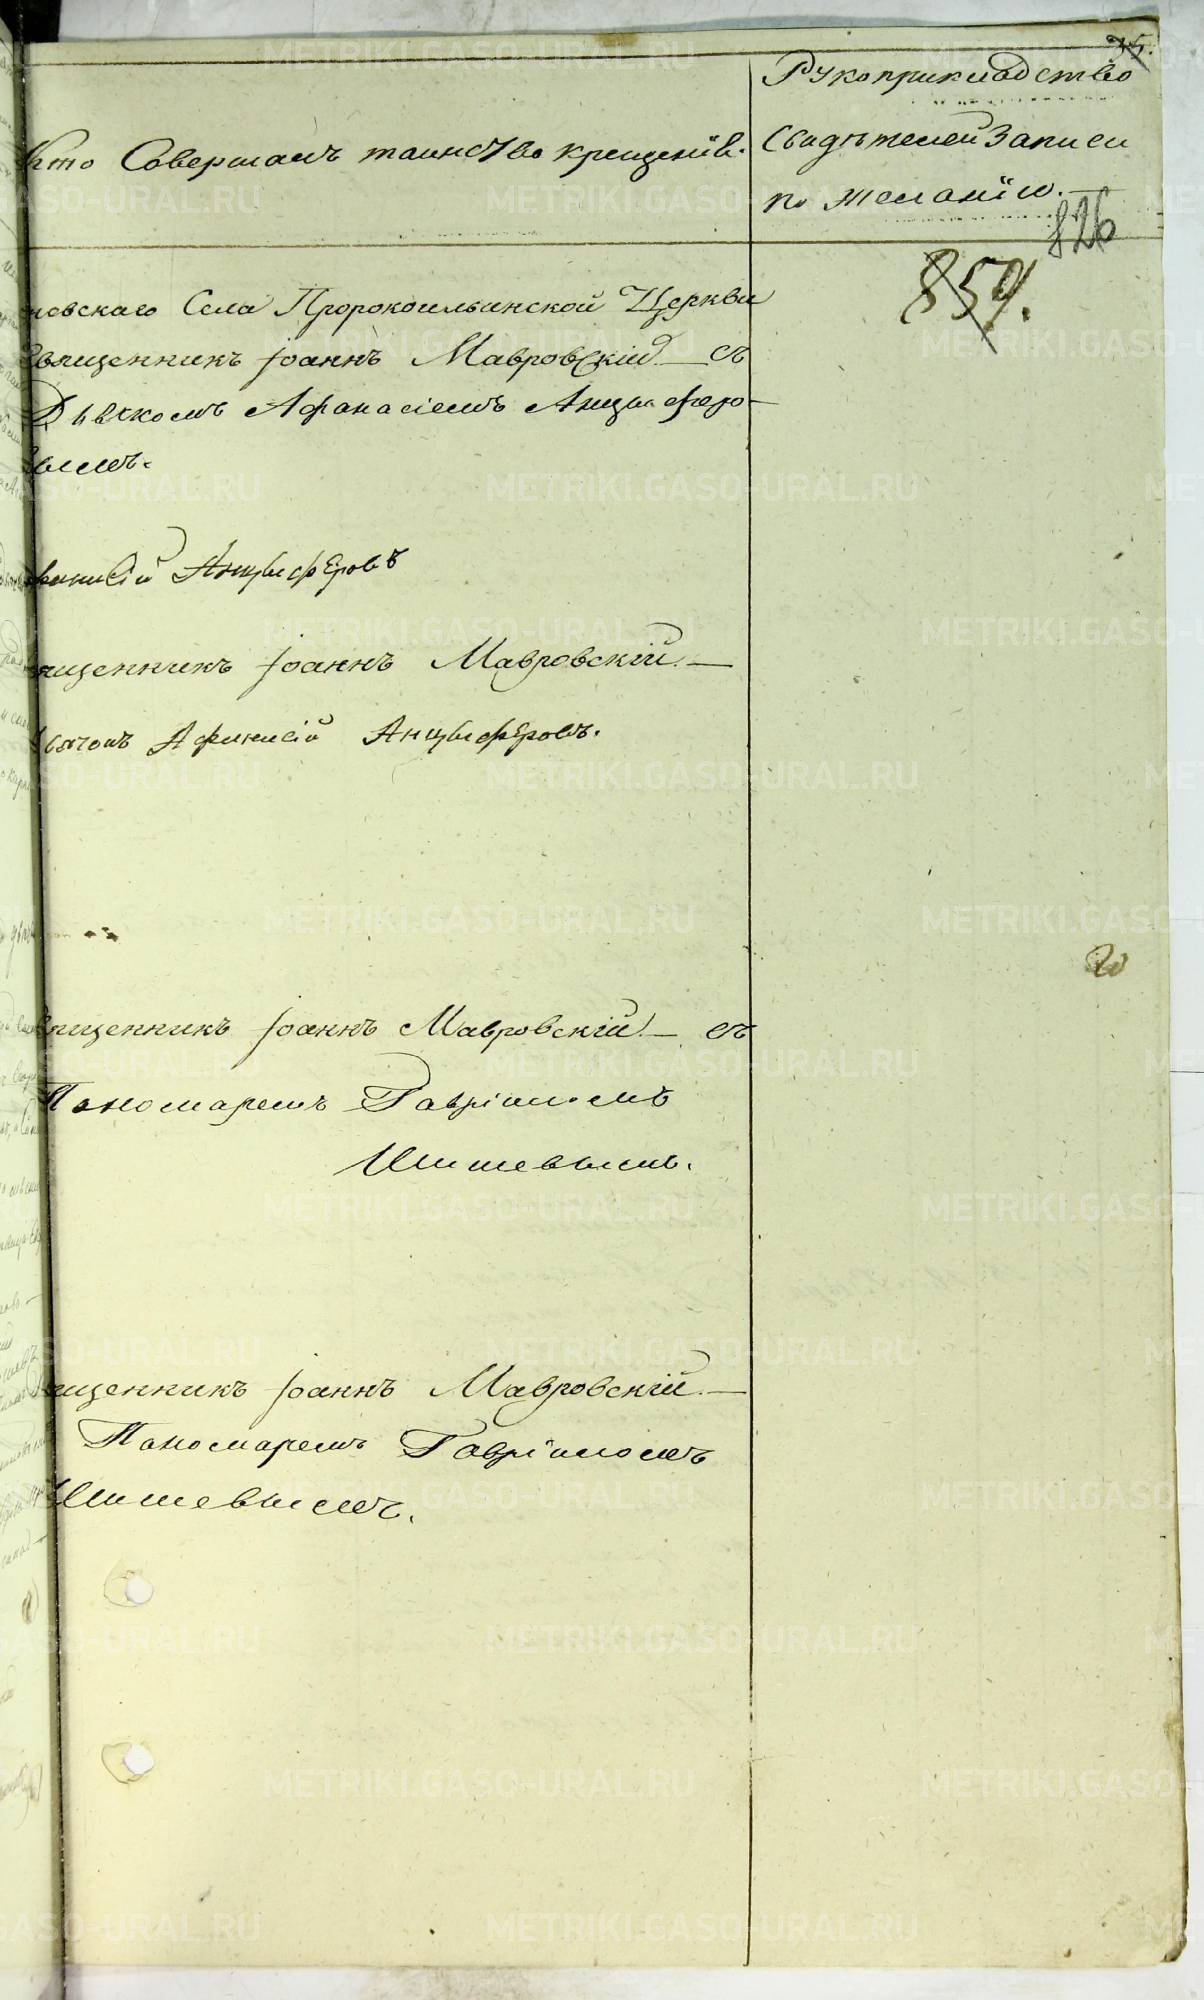 Кто Совершалъ таинство крещенія.
Рукоприкладство
Свидѣтелей Записи
по желанію.
826
859.
новскаго Села Пророкоильинской Церкви
Священникъ Іоаннъ Мавровскій съ
Дьячкомъ Афанасіемъ Анцыферо-
вымъ.
Афанасій Анцыферовъ
Священникъ Іоаннъ Мавровскій
Дьячокъ Афанасій Анцыферовъ.
Священникъ Іоаннъ Мавровскій съ
Пономаремъ Гавріиломъ
Шишевымъ.
Священникъ Іоаннъ Мавровскій
Пономаремъ Гавріиломъ
Шишевымъ.
METRIKI.GASO-URAL.RU